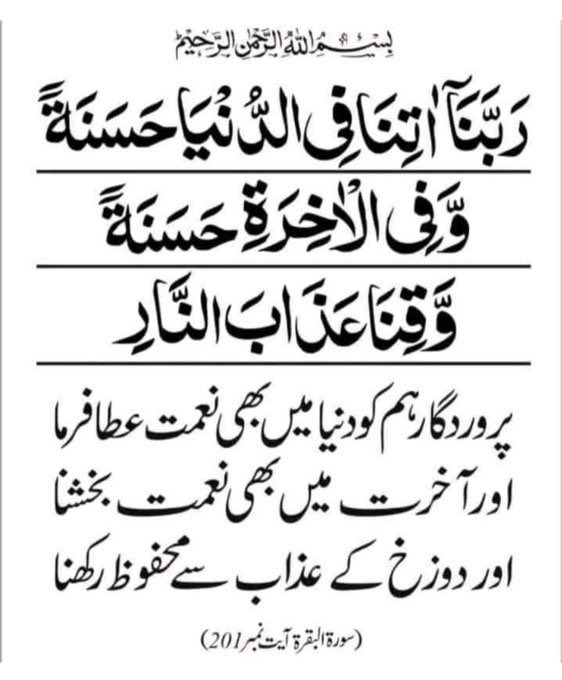 بِسْمِ اللهِ الرَّحْمٰنِ الرَّحِيْمِ
رَبَّنَآ اٰتِنَا فِی الدُّنْیَا حَسَنَةً
وَّ فِی الْاٰخِرَةِ حَسَنَةً
وَّ قِنَا عَذَابَ النَّارِ
پروردگار ہم کو دنیا میں بھی نعمت عطا فرما
اور آخرت میں بھی نعمت بخشنا
اور دوزخ کے عذاب سے محفوظ رکھنا
(سورۃ البقرۃ آیت نمبر 201)